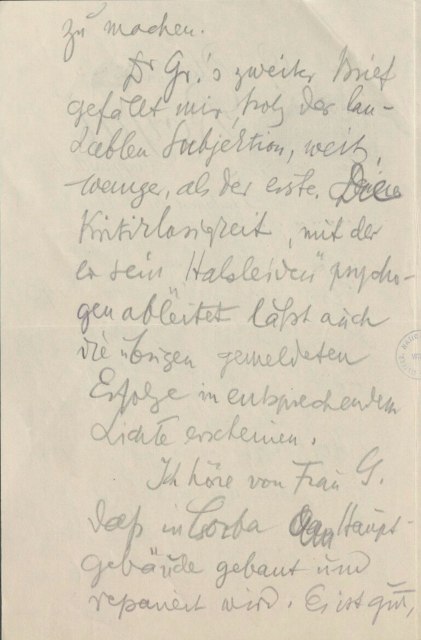 zu machen.
Dr Gr.'s zweiter Brief
gefällt mir, trotz der lau-
dablen Subjektion, weit
weniger, als der erste. Die
Kritiklosigkeit, mit der
er sein "Halsleiden" psycho-
gen ableitet läßt auch
die übrigen gemeldeten
Erfolge in entsprechendem
Lichte erscheinen.
Ich höre von Frau G.
daß in Csorba am Haupt-
gebäude gebaut und
repariert wird. Es ist gut,